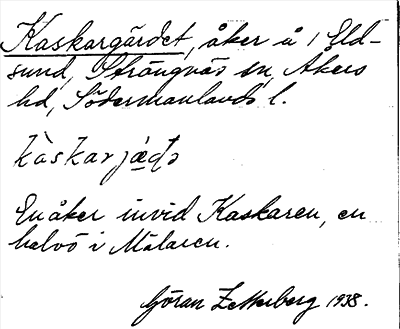 Kaskargärdet, åker å 1 Eld-
sund, Strängnäs sn, Åkers
hd, Södermanlands l.
kàskarjæ̣ḍə
En åker invid Kaskaren, en
halvö i Mälaren.
Göran Zetterberg 1938.